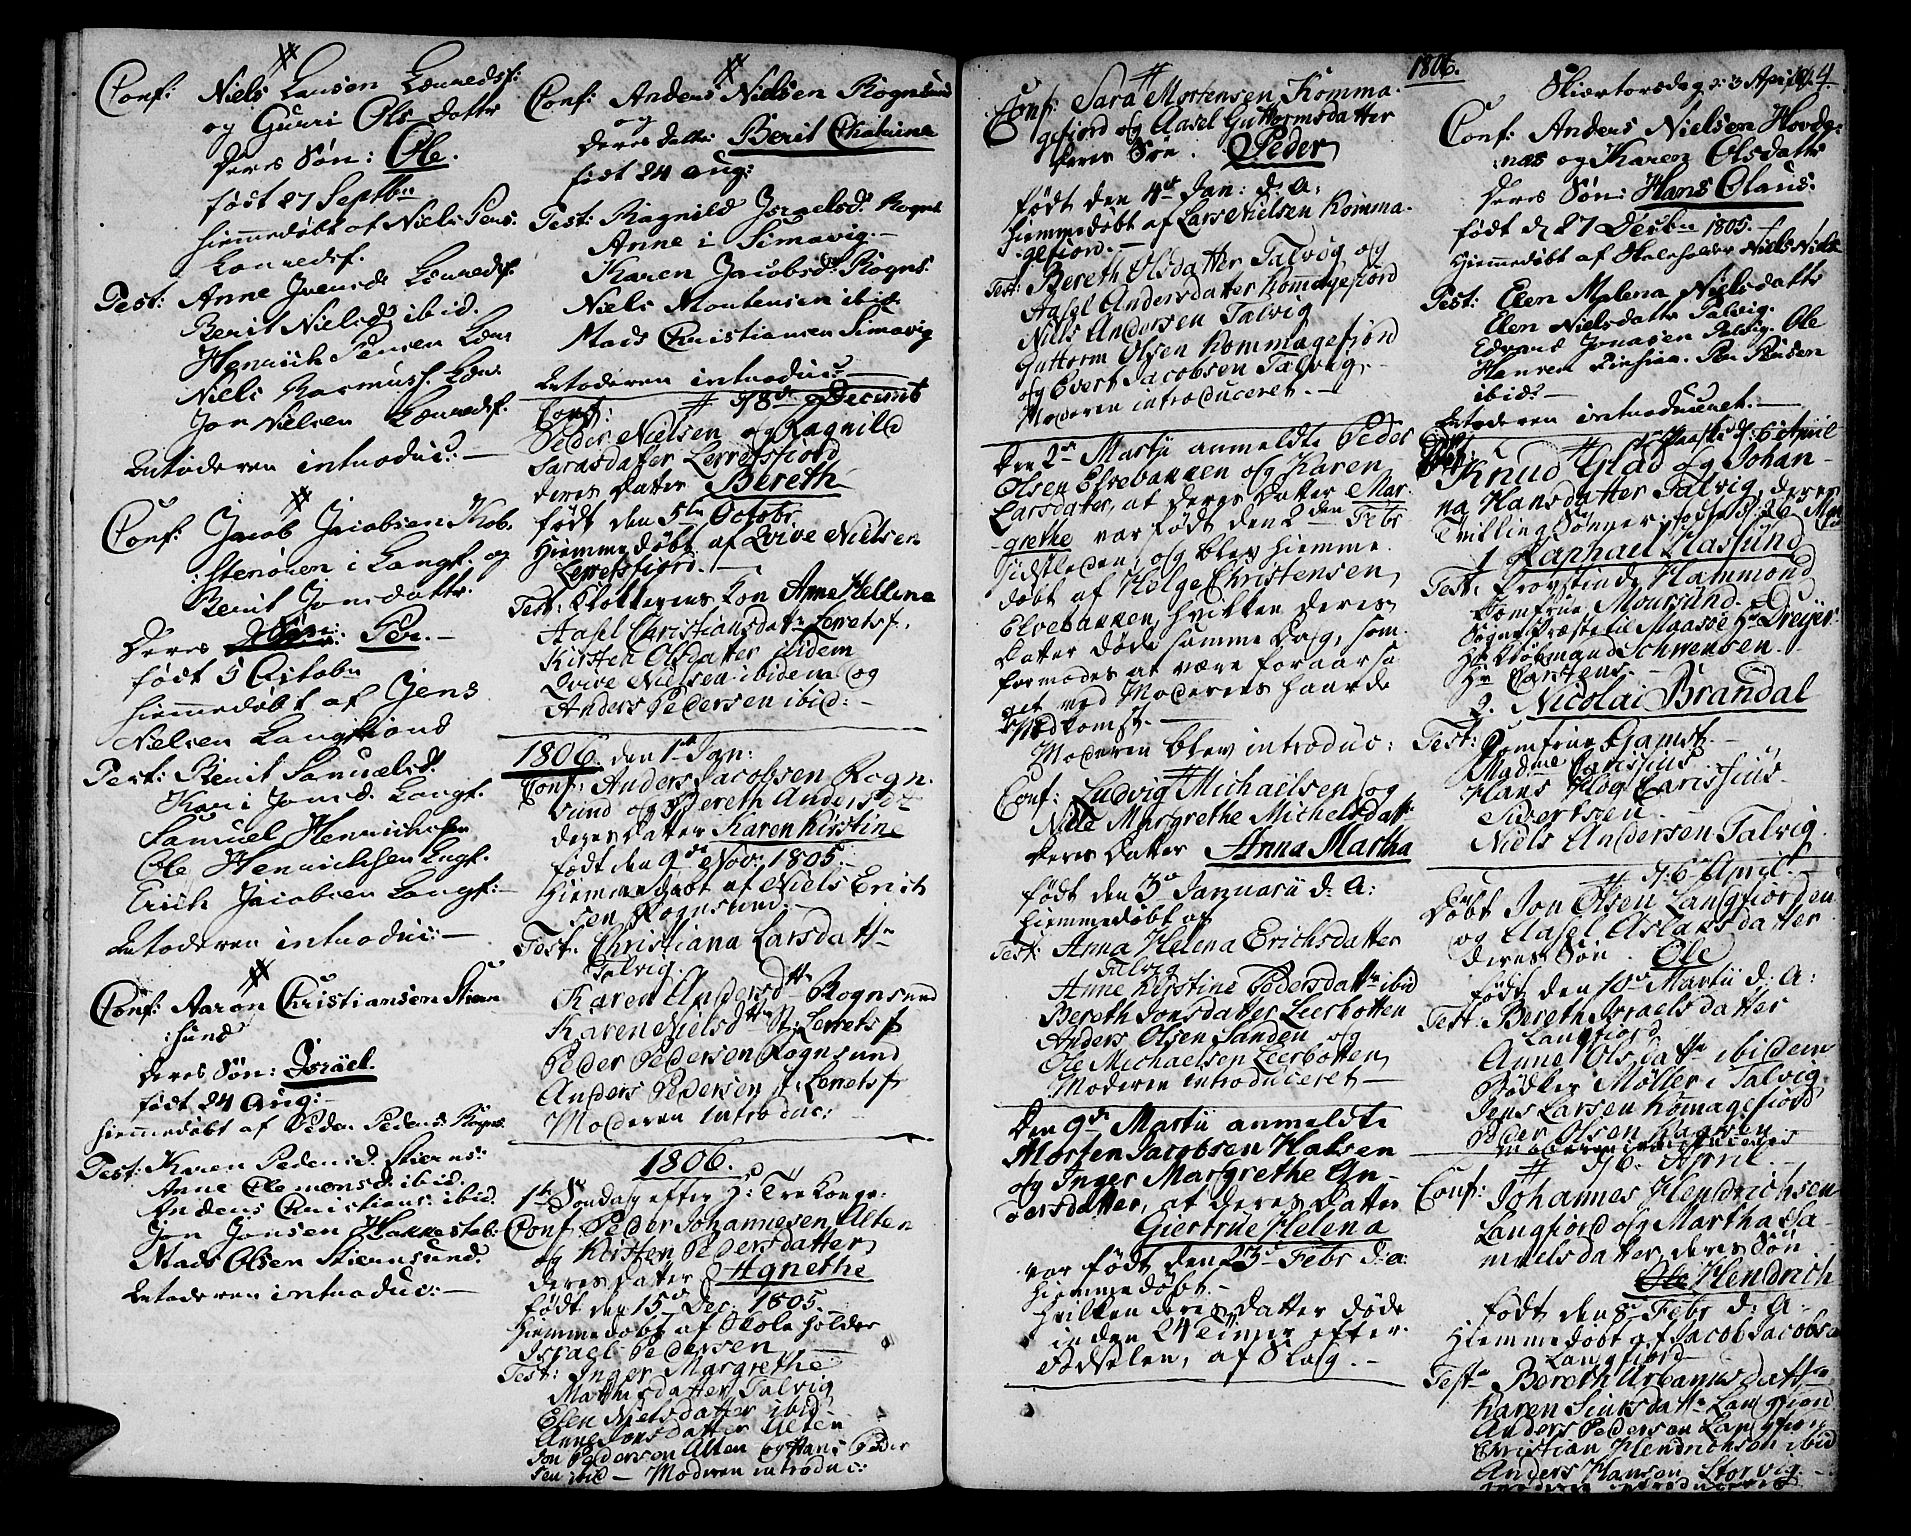 Conf: Niels Larsen Lerredsf:
og Gurri Ols datter
deres Søn: Ole.
født 27 Septbr
hiemmedøbt af Niels Jens.
Lerredsf.
Test: Anne Iversd Lerredsf.
Berit Nielsd ibid.
Henrich Jensen Lerr
Niels Rasmuss. Lerr.
Jon Nielsen Lerredsf.
Moderen introduc: —
Conf: Jacob Jacobsen Kob.
sterøren i Langf. og
Berit Jonsdatter.
deres Per. —
født 5 Octobr
hiemmedøbt af Jens
Nielsen Langfiord
Test: Berit Samuelsd.
Kari Jonsd. Langf.
Samuel Henrichsen
Ole Henrichsen Langf.
Erich Jacobsen Langf: —
Moderen introduc: —
Conf: Aaron Christiansen Stiern
sund
deres Søn: Israel.
født 24 Aug: —
hiemmedøbt af Peder Peders: Rogns.
Test: Karen Pedersd. Stierns:
Anne Clemensd. ibid.
Anders Christians: ibid.
Jon Jonsen Hakkestab:
Mads Olsen Stiernsund.
Moderen introduc: —
Conf: Anders Nielsen Rognsund
og
deres datter: Berit Chatrine
født 24 Aug:
Test: Ragnild Israelsd. Rogns
Anne i Simavig. —
Karen Jacobsd. Rogns.
Niels Mortensen ibid.
Mads Christiansen Simavig
Moderen introduc: —
Conf: # 8de Decimb
Peder Nielsen og Ragnild
Sarasdatter Lerretsfiord
deres Datter Bereth
født den 5te Octobr
hiemmedøbt af Qvive Nielsen
Lerretsfiord. —
Test: Klokkerens Kon Anne Hellene
Aasel Christiansdatter Lerretsf.
Kirsten Olsdatter ibidem
Qvive Nielsen ibidem og
Anders Pedersen ibid: —
1806 den 1ste Jan:
Conf: Anders Jacobsen Rogn.
sund og Bereth Andersd:
deres Datter Karen Kirstine
født den 9de Nov: 1805.
hiemmedøbt af Niels Erich
sen Rognsund. —
Test: Christiana Larsdatter
Talvig.
Karen Andersdtr Rognsund
Karen Nielsdtr St: Lerretsf
Peder Pedersen Rognsund
Anders Pedersen St. Lerretsf
Moderen introduc:
1806.
1ste Søndag efter H: Tre Konge:
Conf Peder Johannesen Alten
og Kirsten Pedersdatter
deres Datter Agnethe
født den 15de Dec: 1805.
hiemmedøbt af Skoleholder
Israel Pedersen —
Test: Inger Margrethe
Matthisdatter Talvig
Elen Nielsdatter ibid —
Anne Jonsdatter Alten
Jon Pedersen Alten og Hans Peder
sen ibid — Moderen introduc:
1806.
Conf: Sara Mortensen Komma-
gefiord og Aasel Guttormsdatter
deres Søn. Peder
født den 4de Jan: d: A:
hiemmedøbt af Lars Nielsen Komma-
gefiord. —
Test: Bereth Olsdatter Talvig og
Aasel Andersdatter Kommagefiord
Niels Andersen Talvig
Guttorm Olsen Kommagefiord
og Evert Jacobsen Talvig. —
Moderen introduceret. —
Den 2de Martii anmeldte Peder
Olsen Elvebakken og Karen
Larsdatter, at deres Datter Mar-
grethe var født den 2den Febr
sidstleden, og blev hiemme-
døbt af Helge Christensen
Elvebakken, hvilken deres
Datter døde samme Dag, som
formodes at være foraarsa
get ved Moderens haarde
Nedkomst. —
Moderen blev introduc:
Conf: Ludvig Michaelsen og
Nille Margrethe Michelsdatter
deres Datter Anna Martha
født den 3de Januarii d: A:
hiemmedøbt af
Test: Anna Helena Erichsdatter
Talvig
Anne Kirstine Pedersdatter ibid
Bereth Jonsdatter Leerbotten
Anders Olsen Sanden og
Ole Michaelsen Leerbotten
Moderen introduceret —
Den 9de Martii anmeldte
Morten Jacobsen Halsen
og Inger Margrethe An-
dersdatter, at deres Datter
Giertrue Helena
var født den 23de Febr d: a:
hiemmedøbt. —
hvilken deres Datter døde
inden 24 Timer efter
Fødselen, af Slag. —
Skiertorsdag d: 3 April
Conf: Anders Nielsen Hovdg:
næs og Karen Olsdatter
deres Søn: Hans Olaus.
født d 27 Decbr 1805. —
hiemmedøbt af Skoleholder Niels Niels
Test: Elen Malena Nielsdatter
Elen Nielsdatter Talvig.
Edvard Jonasen Talvig. Ole
Hansen
ibid. —
Moderen introduceret. —
Paaske d: 6 April
Knud Glad og Johan-
na Hansdatter Talvig, deres
Tvilling Sønner, fødsel d: 26 Mar
1 Raphael Haslund
Test: Provstinde Hammond
Jomfrue Moursund.
Sogne Præst til Maasøe Hr Dreyer:
Hr Kiøbmand Schwensen.
Hr Carstens —
2. Nicolai Brandal
Test: Jomfrue Gamst. —
Madme Carisius
Hans Høeg Carisius
Sivertsen.
Niels Andersen Talvig.
# d 6 April.
Døbt Jon Olsen Langfiorden
og Aasel Aslaksdatter
deres Søn. Ole
født den 10de Martii d: A:
Test: Bereth Israelsdatter
Langfiord
Anne Olsdatter ibidem
Bødker Møller i Talvig.
Jens Larsen Komagefiord
Peder Olsen
Moderen introduceres
# d 6. April
Conf: Johannes Hendrichsen
Langfiord og Martha Sa-
muelsdatter, deres Søn
Ole Hendrich
født den 8de Febr d: A:
hiemmedøbt af Jacob Jacobsen
Langfiord
Test: Bereth Urbanusdatter
Karen Larsdatter Langfiord
Anders Pedersen Langfiord
Christian Hendrichsen ibid
Anders Hansen Storvig. —
Moderen introduceret